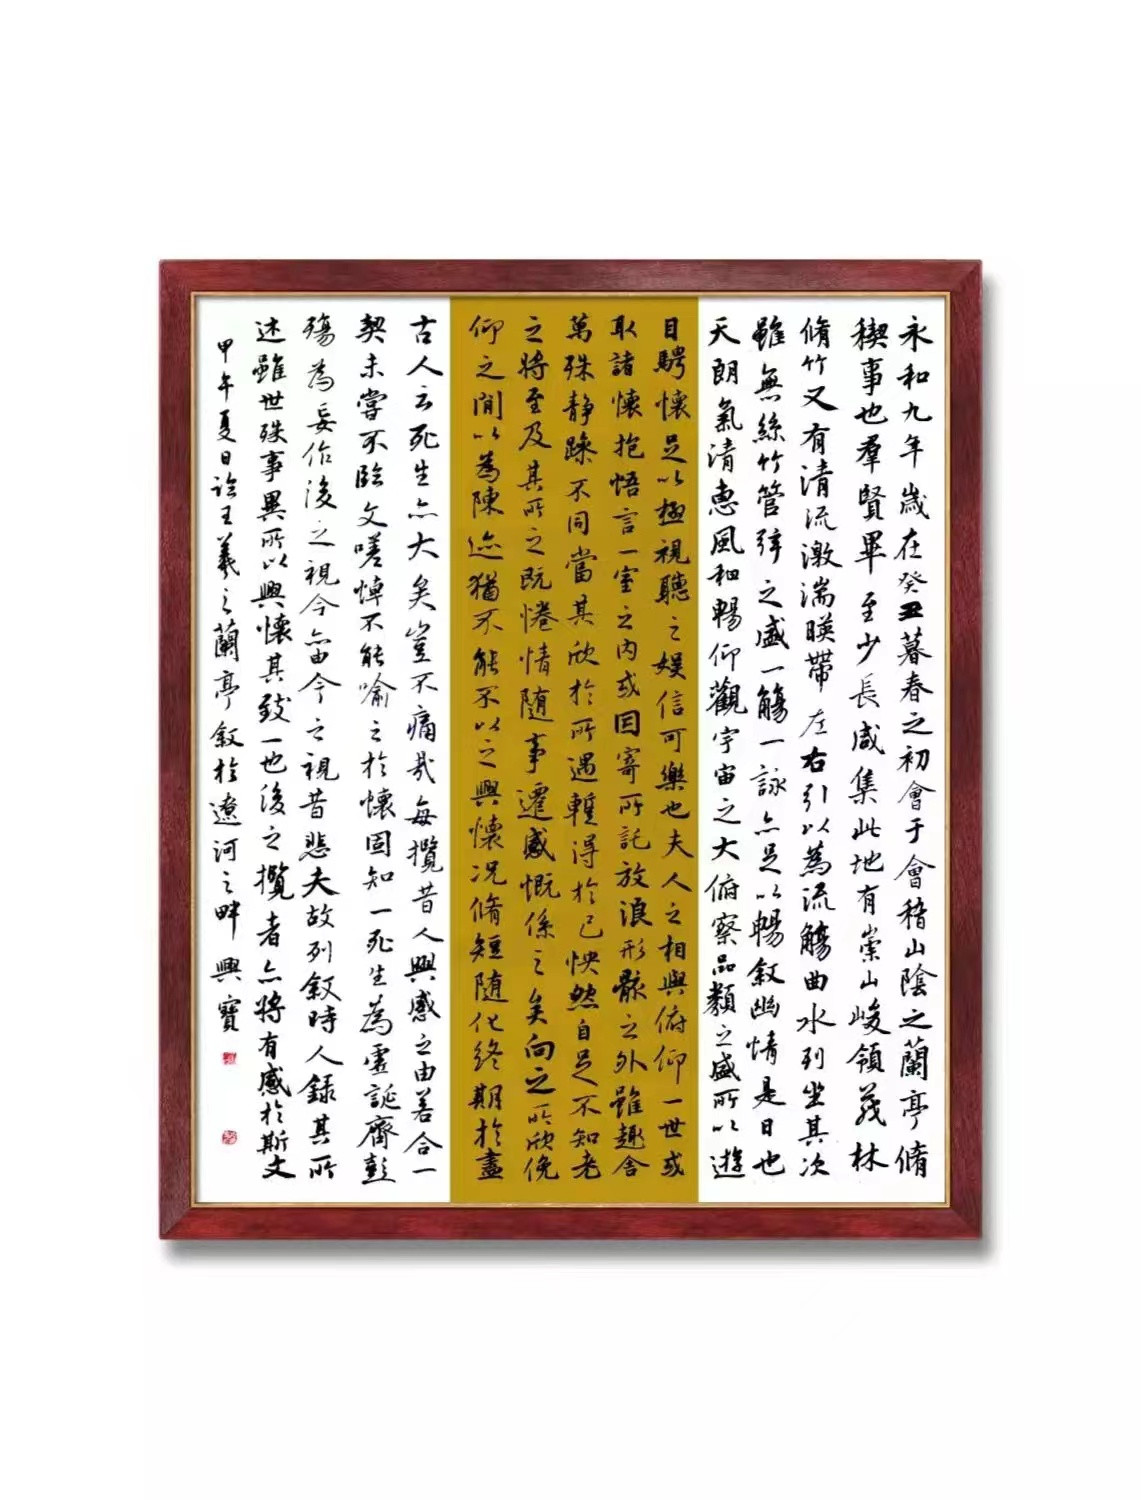 永和九年歲在癸丑暮春之初會于會稽山陰之蘭亭脩
稧事也羣賢畢至少長咸集此地有崇山峻領茂林
脩竹又有清流激湍暎帶左右引以為流觴曲水列坐其次
雖無絲竹管弦之盛一觴一詠亦足以暢叙幽情是日也
天朗氣清惠風和暢仰觀宇宙之大俯察品類之盛所以遊
目騁懷足以極視聽之娛信可樂也夫人之相與俯仰一世或
取諸懷抱悟言一室之內或因寄所託放浪形骸之外雖趣舍
萬殊静躁不同當其欣於所遇暫得於己怏然自足不知老
之將至及其所之既惓情随事遷感慨係之矣向之所欣俛
仰之閒以為陳迹猶不能不以之興懷况脩短随化終期於盡
古人云死生亦大矣豈不痛哉每攬昔人興感之由若合一
契未嘗不臨文嗟悼不能喻之於懷固知一死生為虛誕齊彭
殤為妄作後之視今亦由今之視昔悲夫故列叙時人録其所
述雖世殊事異所以興懷其致一也後之攬者亦將有感於斯文
甲午夏日 王羲之蘭亭叙於遼河之畔興寶